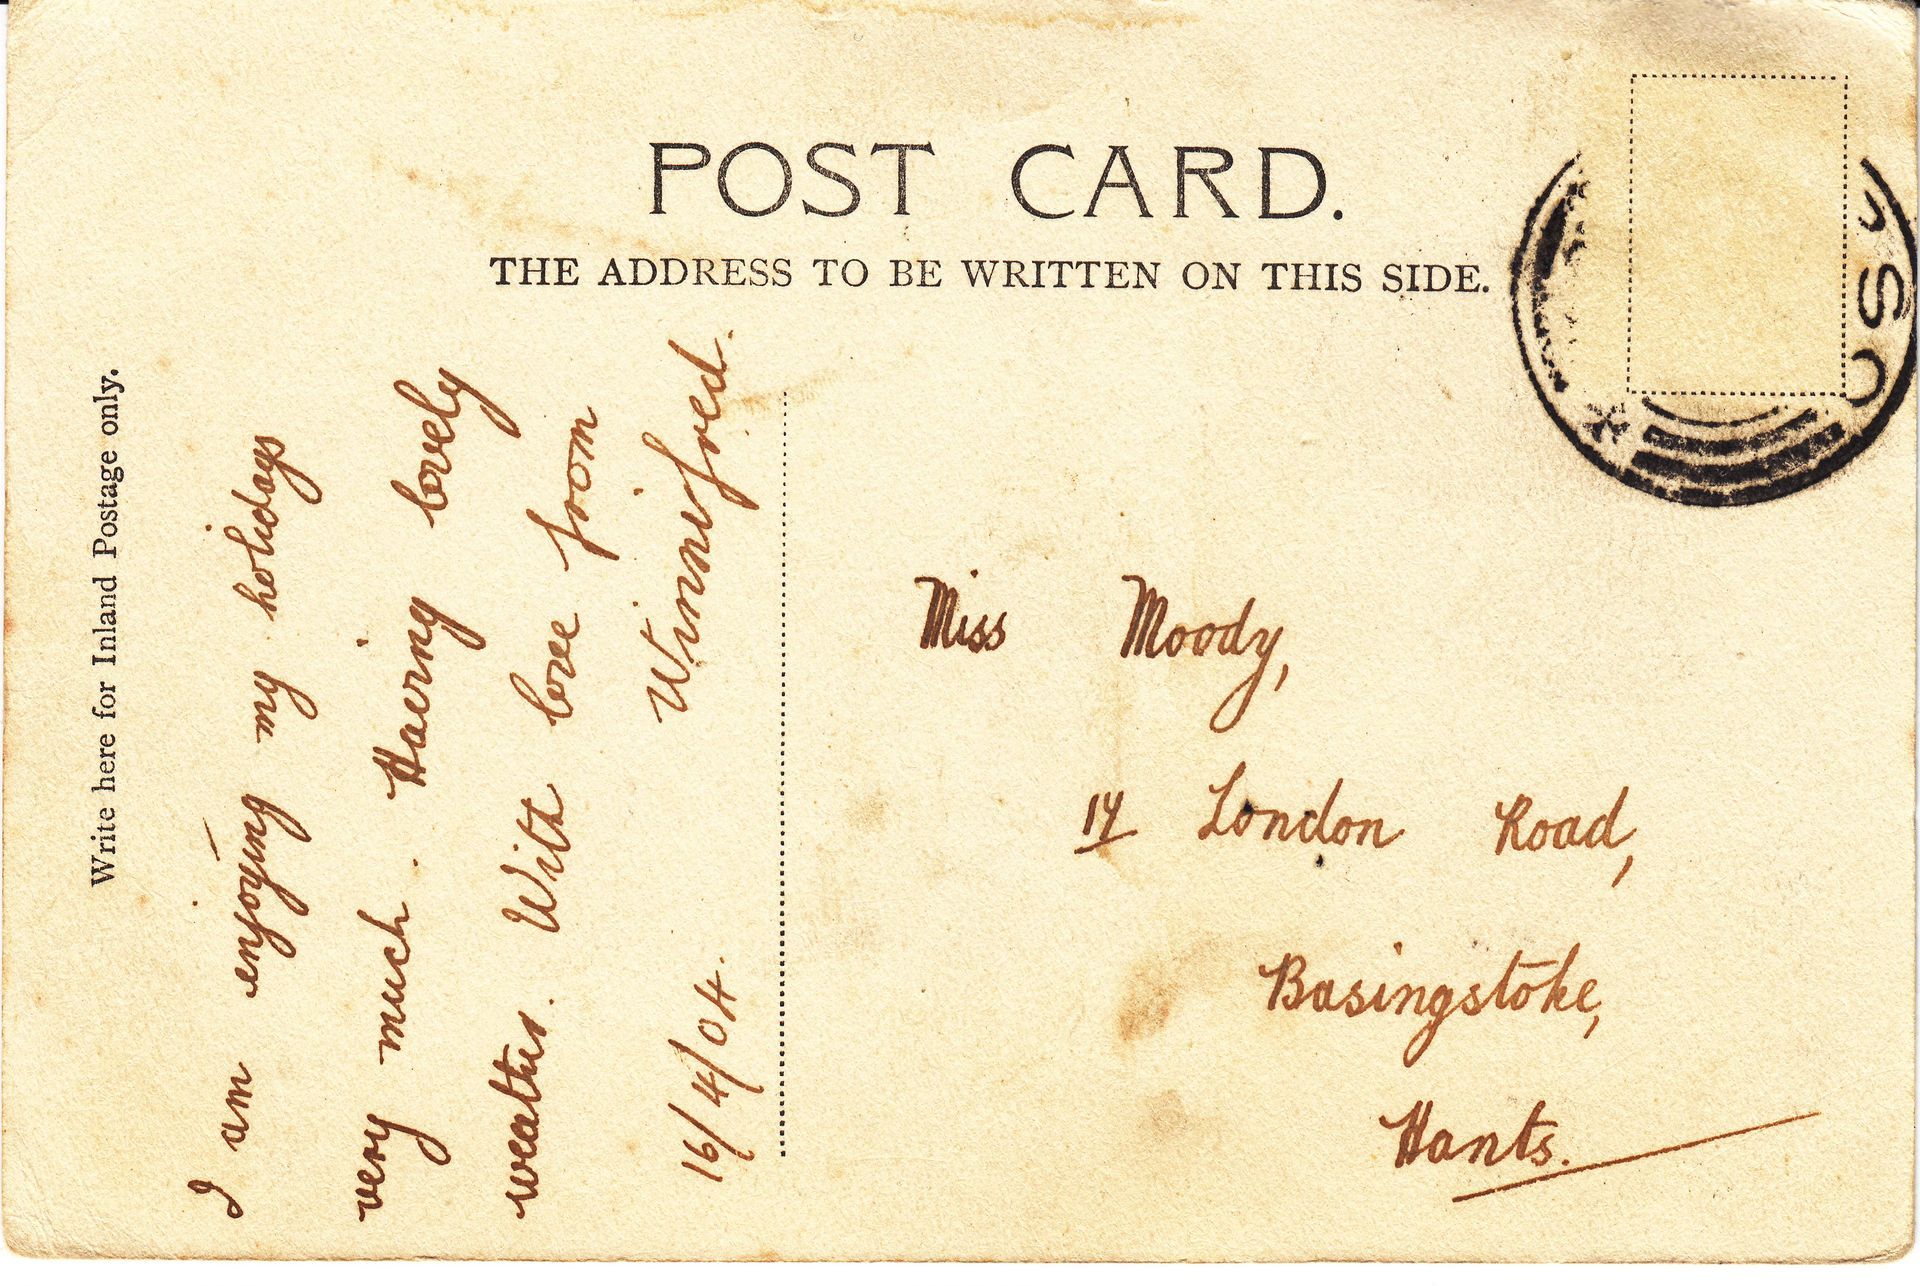 POST CARD.
THE ADDRESS TO BE WRITTEN ON THIS SIDE.
Write here for Inland Postage only.
I am enjoying my holidays
very much. Having lovely
weather. With love from
Winnifred.
16/4/04.
Miss Moody,
14 London Road,
Basingstoke,
Hants.